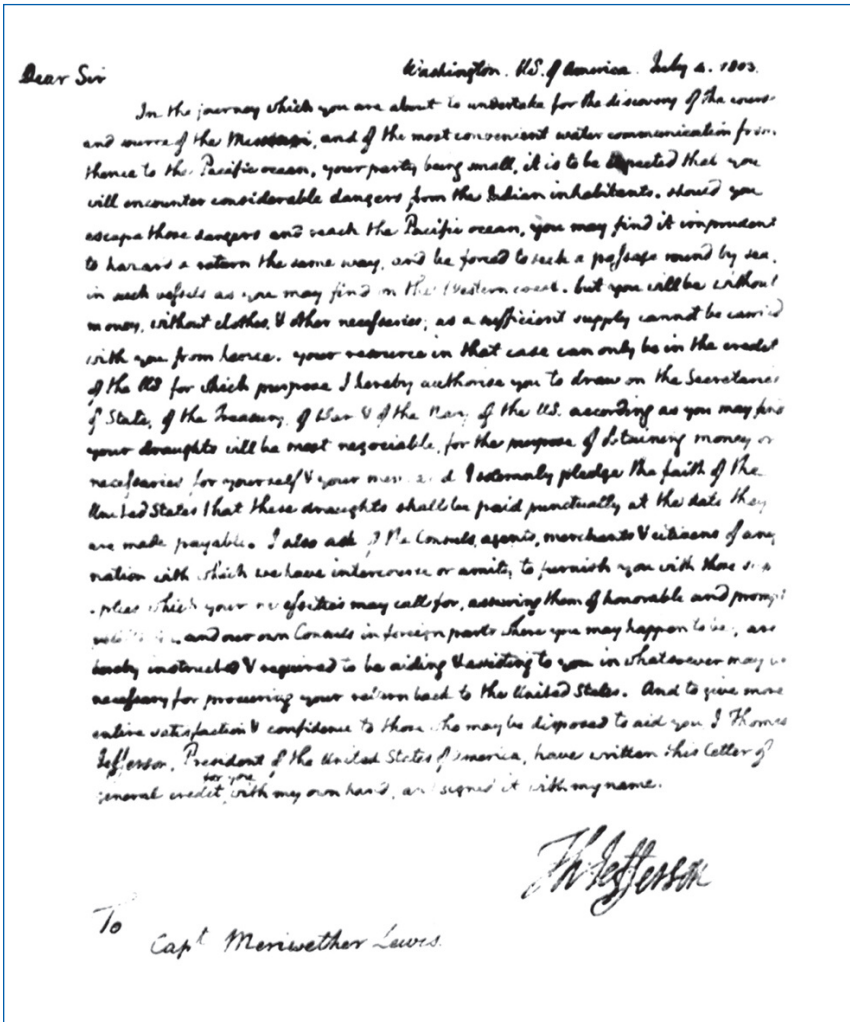 Dear Sir
Washington. US. of America. July 4. 1803.
In the journey which you are about to undertake for the discovery of the course
and source of the Missisipi, and of the most convenient water communication from
thence to the Pacific ocean, your party being small, it is to be expected that you
will encounter considerable dangers from the Indian inhabitants. should you
escape those dangers and reach the Pacific ocean, you may find it imprudent
to hazard a return the same way, and be forced to seek a passage round by sea,
in such vessels as you may find on the Western coast. but you will be without
money, without clothes, & other necessaries; as a sufficient supply cannot be carried
with you from hence. your resource in that case can only be in the credit
of the US for which purpose I hereby authorise you to draw on the Secretaries
of State, of the Treasury, of War & of the Navy of the US. according as you may find
your draughts will be most negociable, for the purpose of obtaining money or
necessaries for yourself & your men: and I solemnly pledge the faith of the
United States that these draughts shall be paid punctually at the date they
are made payable. I also ask of the Consuls, agents, merchants & citizens of any
nation with which we have intercourse or amity to furnish you with those sup
plies which your necessities may call for, assuring them of honorable and prompt
and our own Consuls in foreign parts where you may happen to be, are
hereby instructed & required to be aiding & assisting to you in whatsoever may be
necessary for procuring your return back to the United States. And to give more
entire satisfaction & confidence to those who may be disposed to aid you I Thomas
Jefferson, President of the United States of America, have written this letter of
general credit for you with my own hand, and signed it with my name.
Th Jefferson
To
Capt Meriwether Lewis.